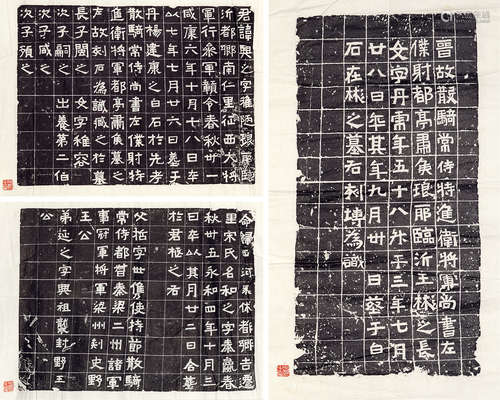 君諱興之字稚陋琅耶臨
沂都鄉南仁里征西大將
軍行參軍贛令春秋卅一
咸康六年十月十八日卒
以七年七月廿六日葬于
丹楊建康之白石於先考
散騎常侍尚書左僕射特
進衛將軍都亭肅侯墓之
左故刻石為識臧之於墓
長子閩之 女字稚容
次子嗣之 出養第二伯
次子咸之
次子預之
命婦西河界休都鄉吉遷
里宋氏名和之字秦嬴春
秋卅五永和四年十月三
日卒以其月廿二日合葬
於君柩之右
父哲字世儁使持節散騎
常侍都督秦梁二州諸軍
事冠軍將軍梁州刺史野
王公
弟延之字興祖襲封野王
公
晉故散騎常侍特進衛將軍尚書左
僕射都亭肅侯琅耶臨沂王彬之長
女字丹虎年五十八升平三年七月
廿八日卒其年九月卅日葬于白
石在彬之墓右刻塼為識